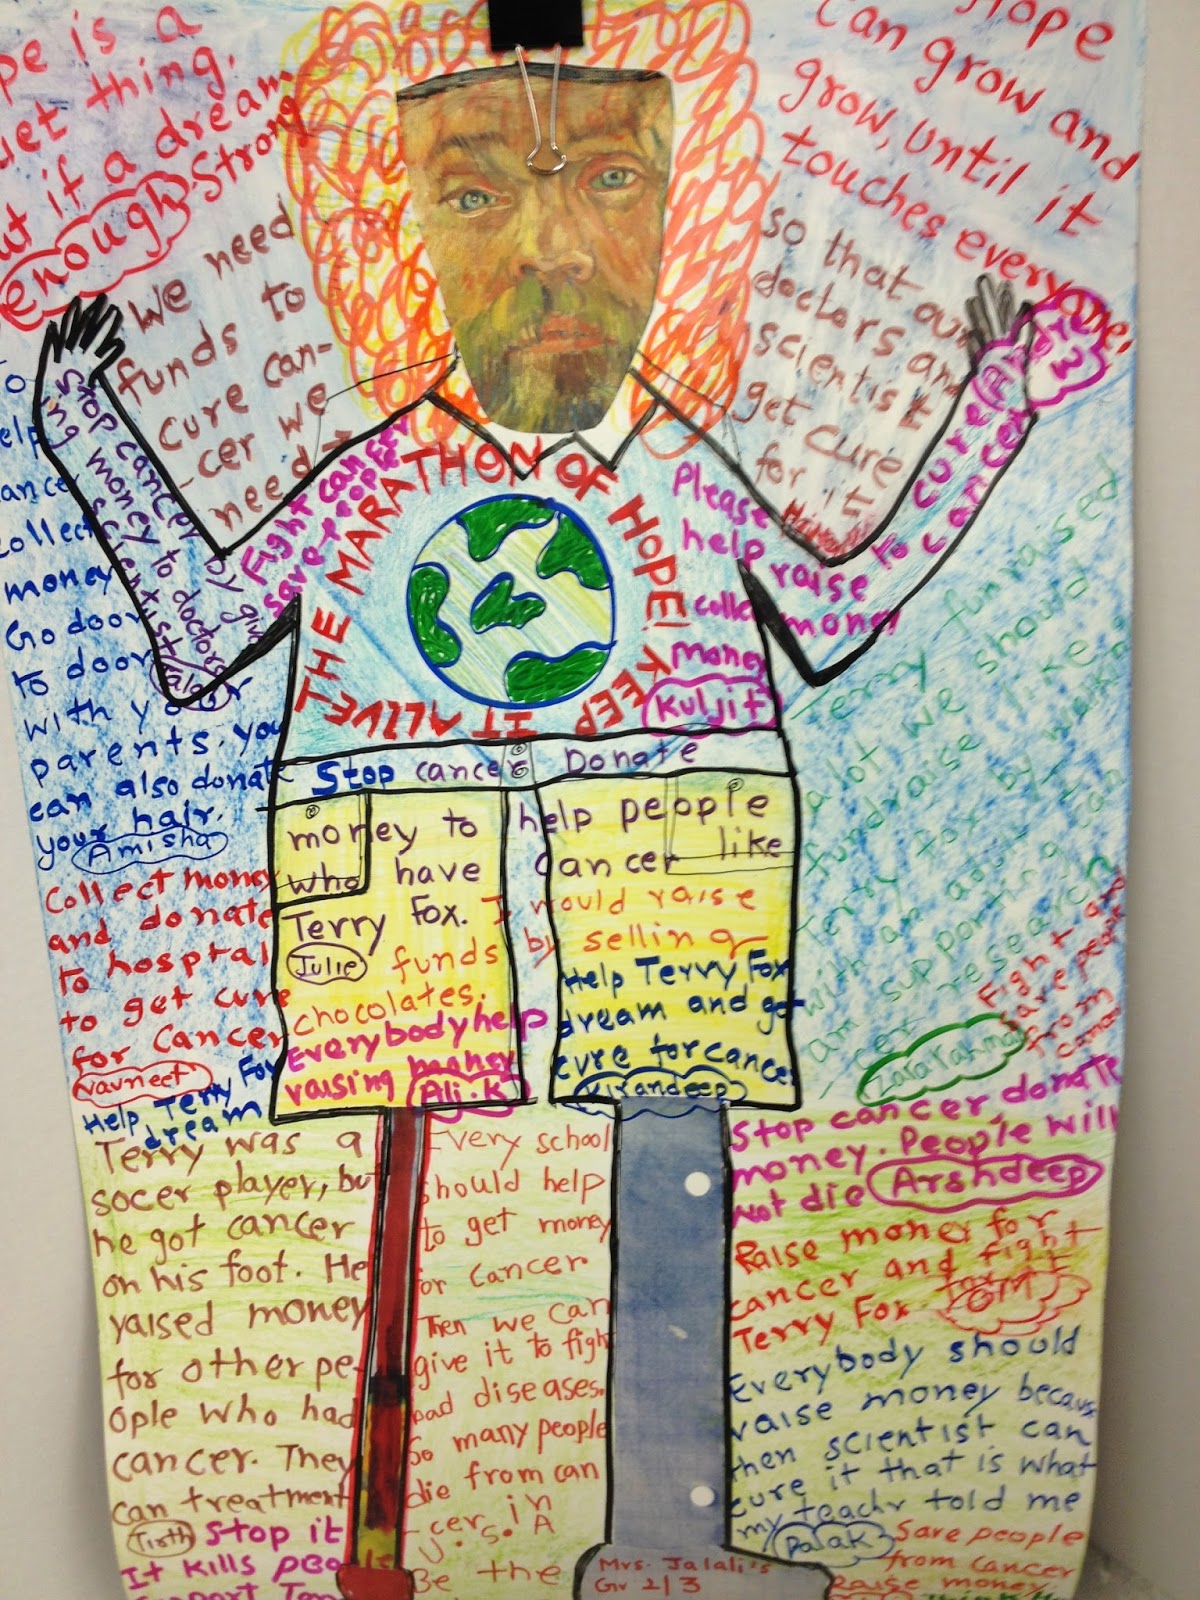 pe is a
uet thing.
ut if a dream
enough. Strong
Hope
can grow and
grow, until it
touches everyone.
We need
funds to
cure can-
cer we
need
so that our
doctors and
scientist
get cure
for it
Andre
w
To cure
cancer
Stop cancer by giv
ing money to doctors
scientist
Fight cancer
save people
THE MARATHON OF HOPE! KEEP IT ALIVE
Please
help
raise
money
collect
money
Kuljit
To
elp
ance
collect
money
Go door
to door
with your
parents. you
can also donate
your hair.
Amisha
Stop cancer Donate
money to help people
who have cancer like
Terry Fox.
Julie
I would raise
funds by selling
chocolates.
Everybody help
raising money
Ali.K
Help Terry Fox
dream and get
cure for cancer
Kirandeep
Terry funraised
alot we should
fundraise like
Terry fox by walking
with an adult I
am supporting can
cer research
Zararahman
Fight and
save people
from
cancer
Collect money
and donate
to hospital
to get cure
for Cancer
navneet
Help Terry Fox
dream
Terry was a
socer player, but
he got cancer
on his foot. He
raised money
for other pe-
ople who had
cancer. They
can treatment
Tirth
Stop it
It kills people
Every school
should help
to get money
for cancer
Then we can
give it to figh
bad diseases.
So many people
die from can
cers. in
Be the
Stop cancer, donate
money. People will
not die Arshdeep
Raise money for
cancer and fight
Terry Fox.
Everybody should
raise money because
then scientist can
cure it that is what
my teachr told me
Palak
Save people
from cancer
Raise money.
Mrs. Jalali's
Gr 2/3